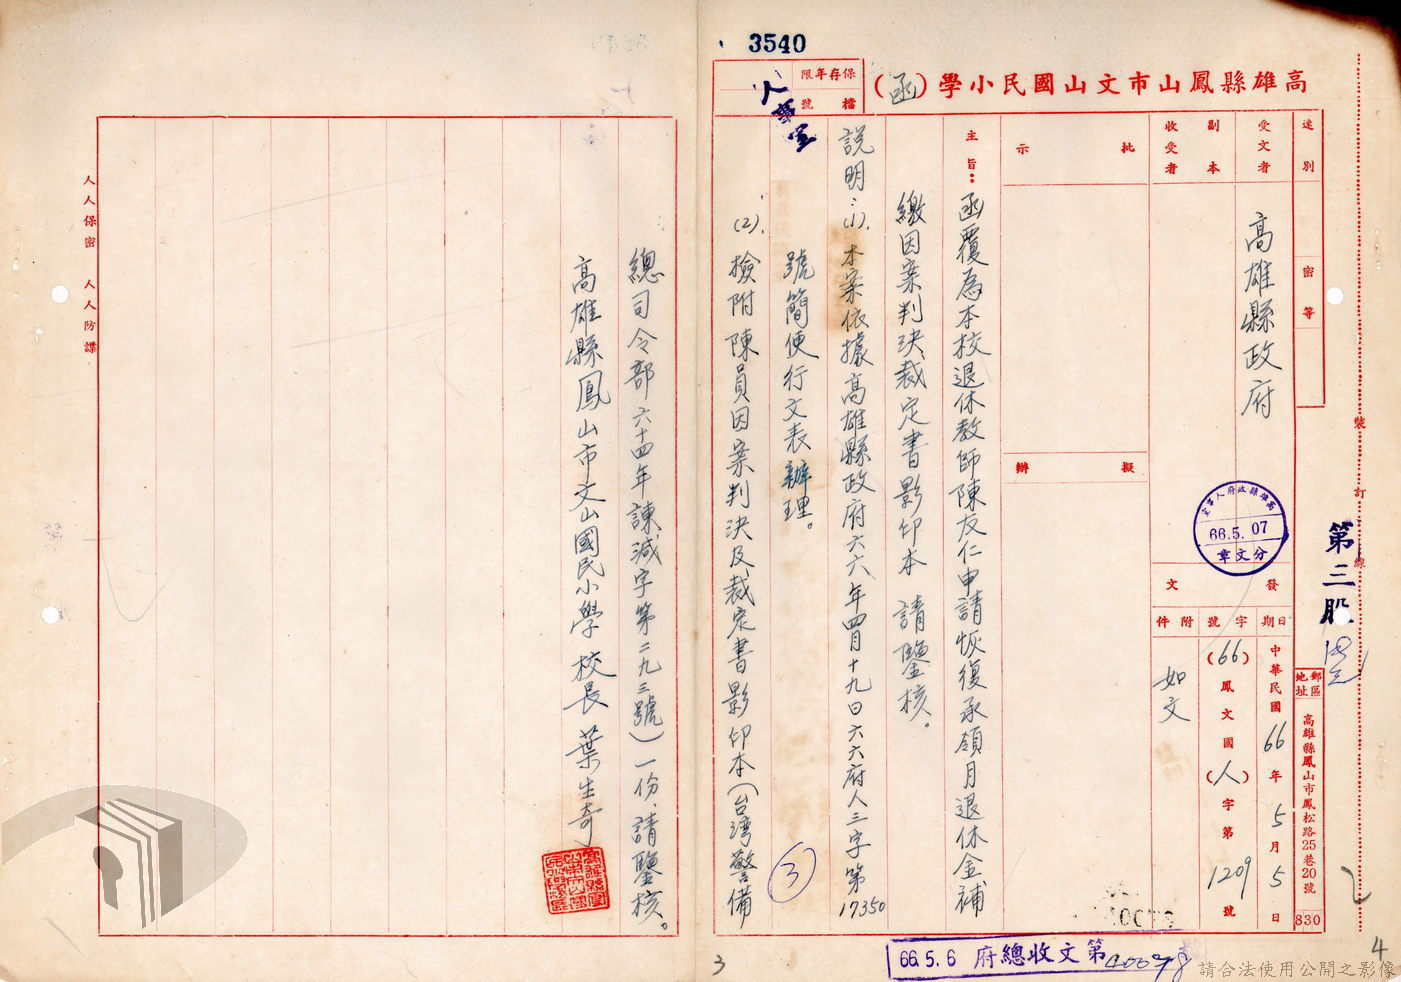 3540
高雄縣鳳山市文山國民小學（函）
保存年限
檔號
人事室
速別
密等
受文者
高雄縣政府
副本
收受者
發文
日期
中華民國66年5月5日
字號
(66)鳳文國(人)字第1209號
附件
如文
郵區
地址
高雄縣鳳山市鳳松路25巷20號
830
批示
擬辦
主旨：函覆為本校退休教師陳友仁申請恢復承領月退休金補
繳因案判決裁定書影印本 請鑒核。
說明：(1).本案依據高雄縣政府六六年四月十九日六六府人三字第17350
號簡便行文表辦理。
(2).檢附陳員因案判決及裁定書影印本(台灣警備
總司令部六十四年諫減字第二九三號)一份、請鑒核。
高雄縣鳳山市文山國民小學校長葉生奇
裝訂線
第三股
高雄縣政府人事室
66.5.07
分文章
府總收文第
66.5.6
3
3
4
人人保密 人人防諜
請合法使用公開之影像